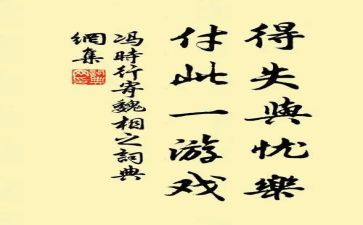 得失與忧樂
付此一游戏
冯時行寄魏相之詞典
網集